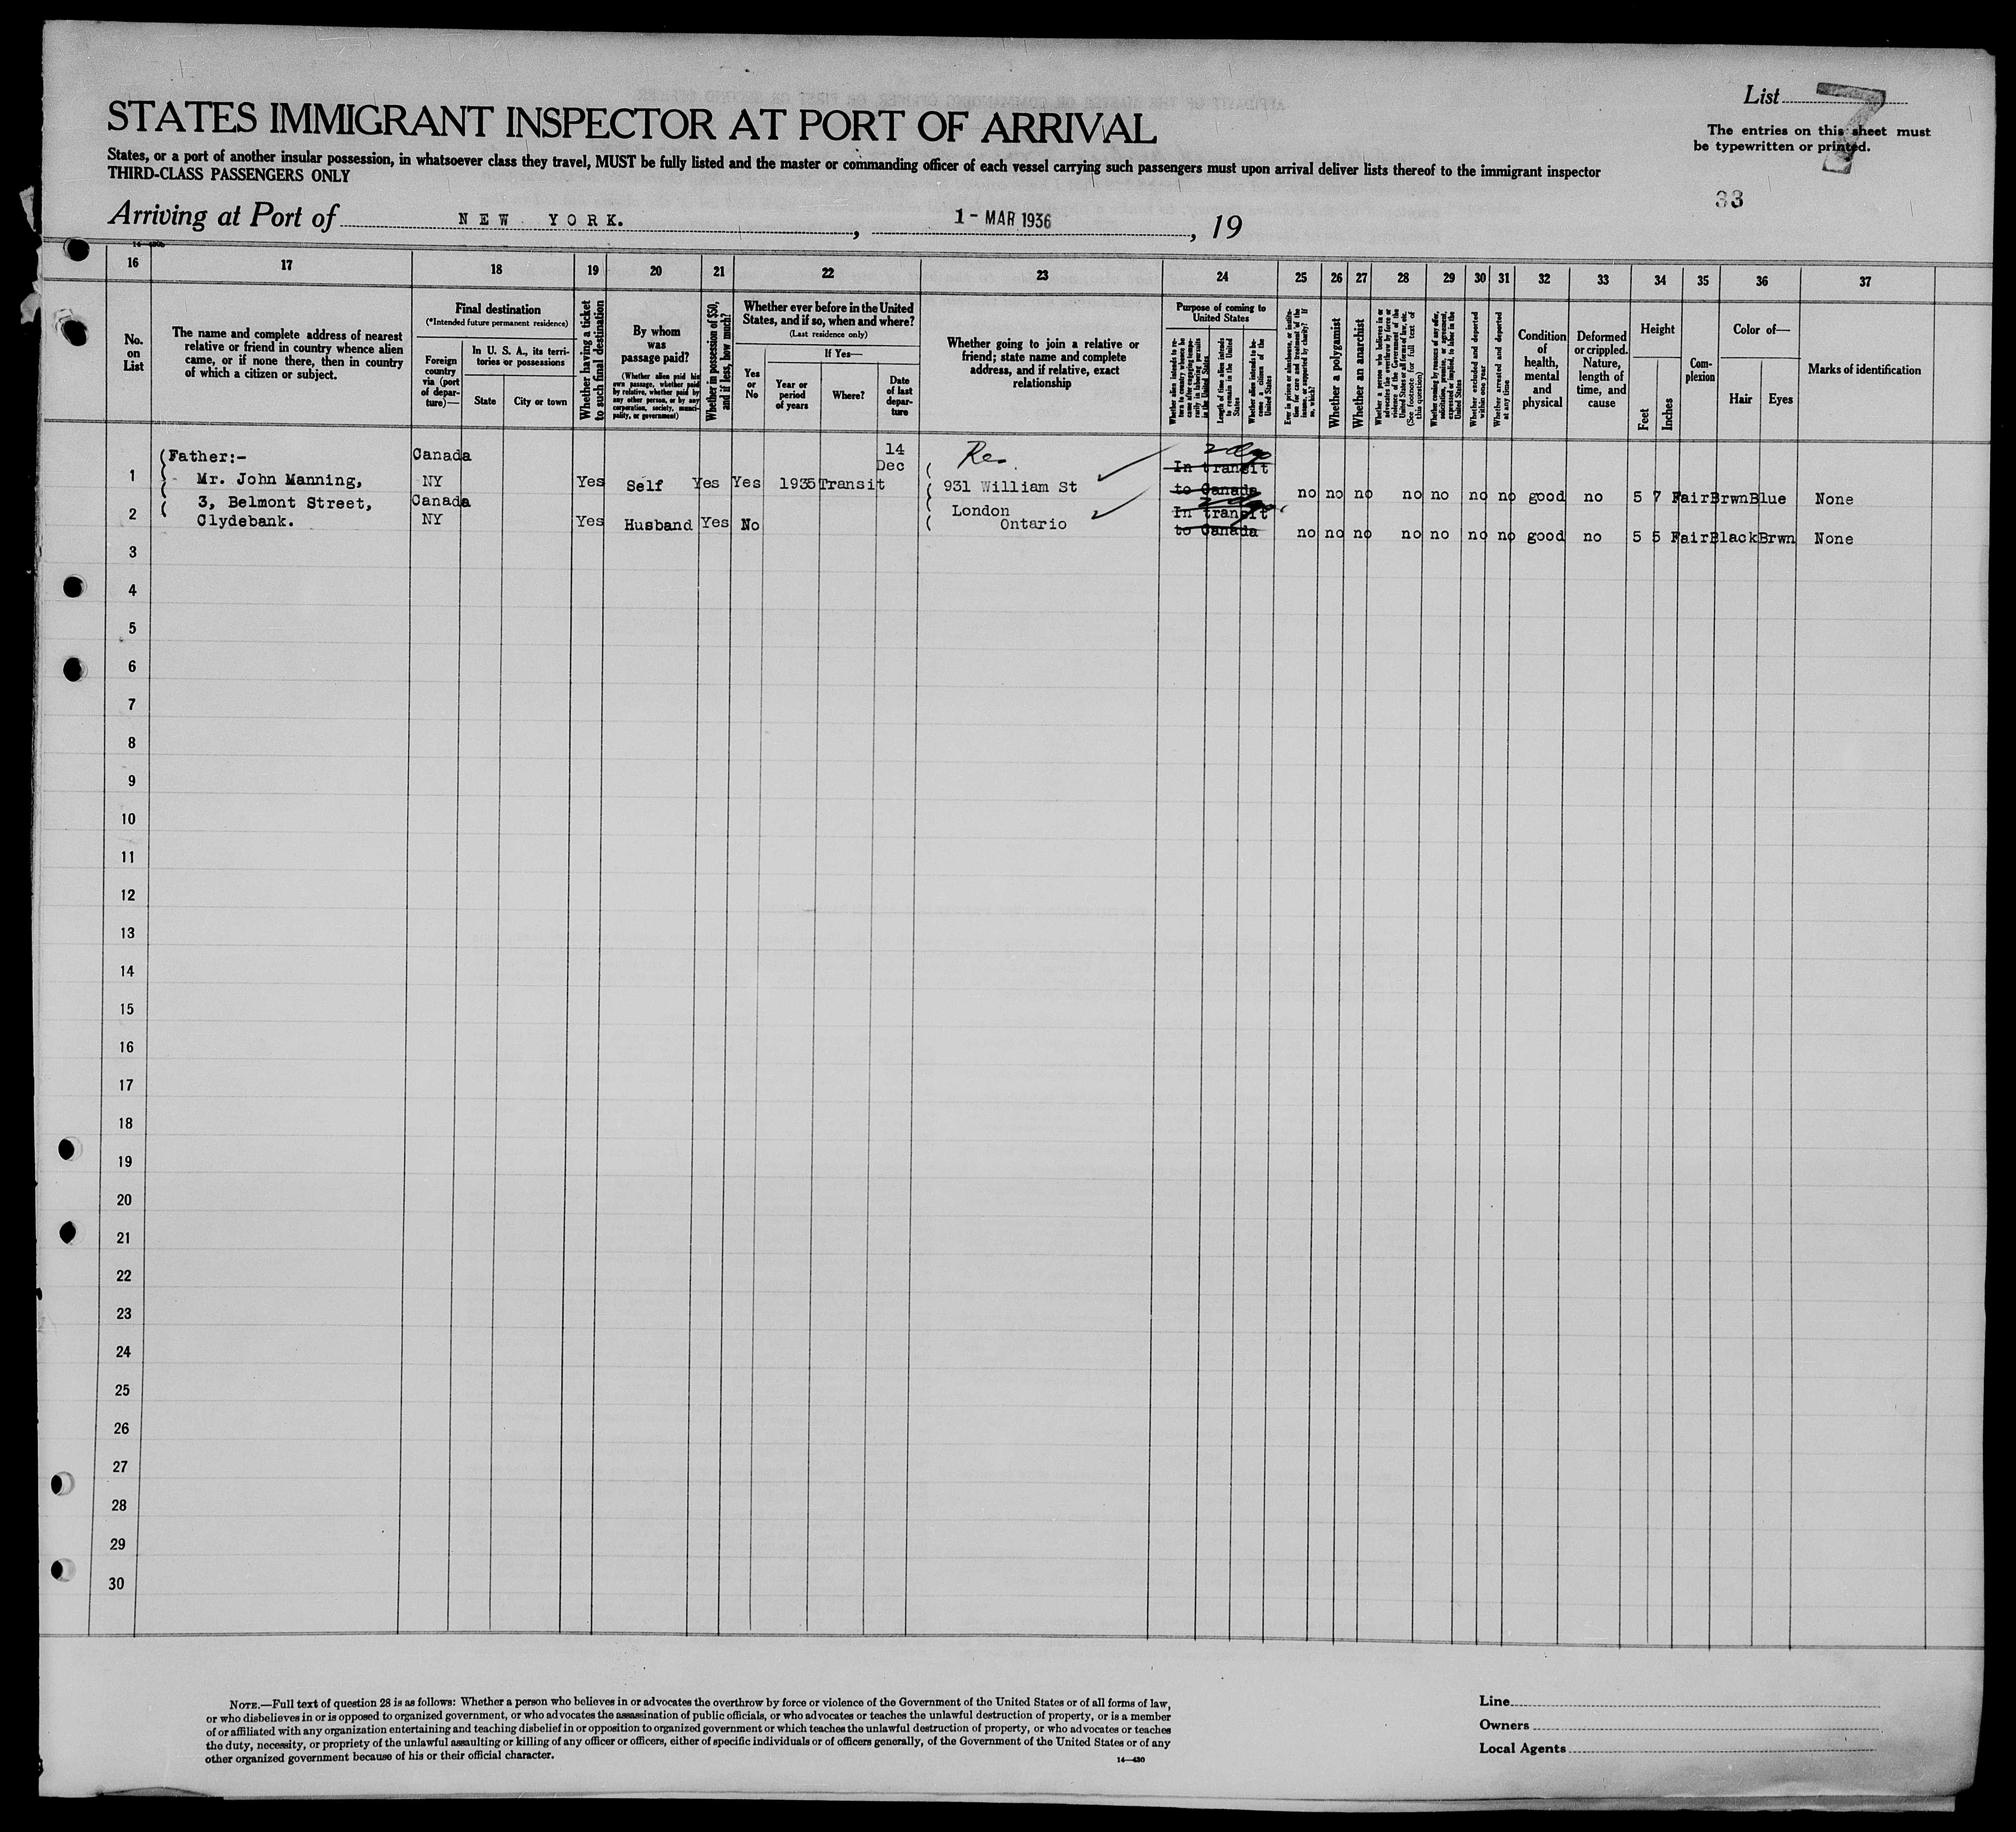 List 7
STATES IMMIGRANT INSPECTOR AT PORT OF ARRIVAL
The entries on this sheet must
be typewritten or printed.
States, or a port of another insular possession, in whatsoever class they travel, MUST be fully listed and the master or commanding officer of each vessel carrying such passengers must upon arrival deliver lists thereof to the immigrant inspector
THIRD-CLASS PASSENGERS ONLY
33
Arriving at Port of NEW YORK. , 1- MAR 1936 , 19
16 17 18 19 20 21 22 23 24 25 26 27 28 29 30 31 32 33 34 35 36 37
No.
on
List
The name and complete address of nearest
relative or friend in country whence alien
came, or if none there, then in country
of which a citizen or subject.
Final destination
(*Intended future permanent residence)
Foreign
country
via (port
of depar-
ture)—
In U. S. A., its terri-
tories or possessions
State
City or town
Whether having a ticket
to such final destination
By whom
was
passage paid?
(Whether alien paid his
own passage, whether paid
by relative, whether paid by
any other person, or by any
corporation, society, munici-
pality, or government)
Whether in possession of $50,
and if less, how much?
Whether ever before in the United
States, and if so, when and where?
(Last residence only)
Yes
or
No
If Yes—
Year or
period
of years
Where?
Date
of last
depar-
ture
Whether going to join a relative or
friend; state name and complete
address, and if relative, exact
relationship
Purpose of coming to
United States
Whether alien intends to re-
turn to country whence he
came after engaging tempo-
rarily in laboring pursuits
in the United States
Length of time alien intends
to remain in the United
States
Whether alien intends to be-
come a citizen of the
United States
Ever in prison or almshouse, or institu-
tion for care and treatment of the
insane, or supported by charity? If
so, which?
Whether a polygamist
Whether an anarchist
Whether a person who believes in or
advocates the overthrow by force or
violence of the Government of the
United States or all forms of law, etc.
(See footnote for full text of
this question)
Whether coming by reasons of any offer,
solicitation, promise, or agreement,
expressed or implied, to labor in the
United States
Whether excluded and deported
within one year
Whether arrested and deported
at any time
Condition
of
health,
mental
and
physical
Deformed
or crippled.
Nature,
length of
time, and
cause
Height
Feet
Inches
Com-
plexion
Color of—
Hair
Eyes
Marks of identification
1
(Father:-
Mr. John Manning,
3, Belmont Street,
Clydebank.
Canada
NY
Yes Self Yes Yes 1935 Transit
14
Dec
931 William St
London
Ontario
In transit
to Canada
no no no no no no no good no 5 7 Fair Brwn Blue None
2
Canada
NY
Yes Husband Yes No
In transit
to Canada
no no no no no no no good no 5 5 Fair Black Brwn None
3
4
5
6
7
8
9
10
11
12
13
14
15
16
17
18
19
20
21
22
23
24
25
26
27
28
29
30
NOTE.—Full text of question 28 is as follows: Whether a person who believes in or advocates the overthrow by force or violence of the Government of the United States or of all forms of law,
or who disbelieves in or is opposed to organized government, or who advocates the assassination of public officials, or who advocates or teaches the unlawful destruction of property, or is a member
of or affiliated with any organization entertaining and teaching disbelief in or opposition to organized government or which teaches the unlawful destruction of property, or who advocates or teaches
the duty, necessity, or propriety of the unlawful assaulting or killing of any officer or officers, either of specific individuals or of officers generally, of the Government of the United States or of any
other organized government because of his or their official character.
14—430
Line
Owners
Local Agents